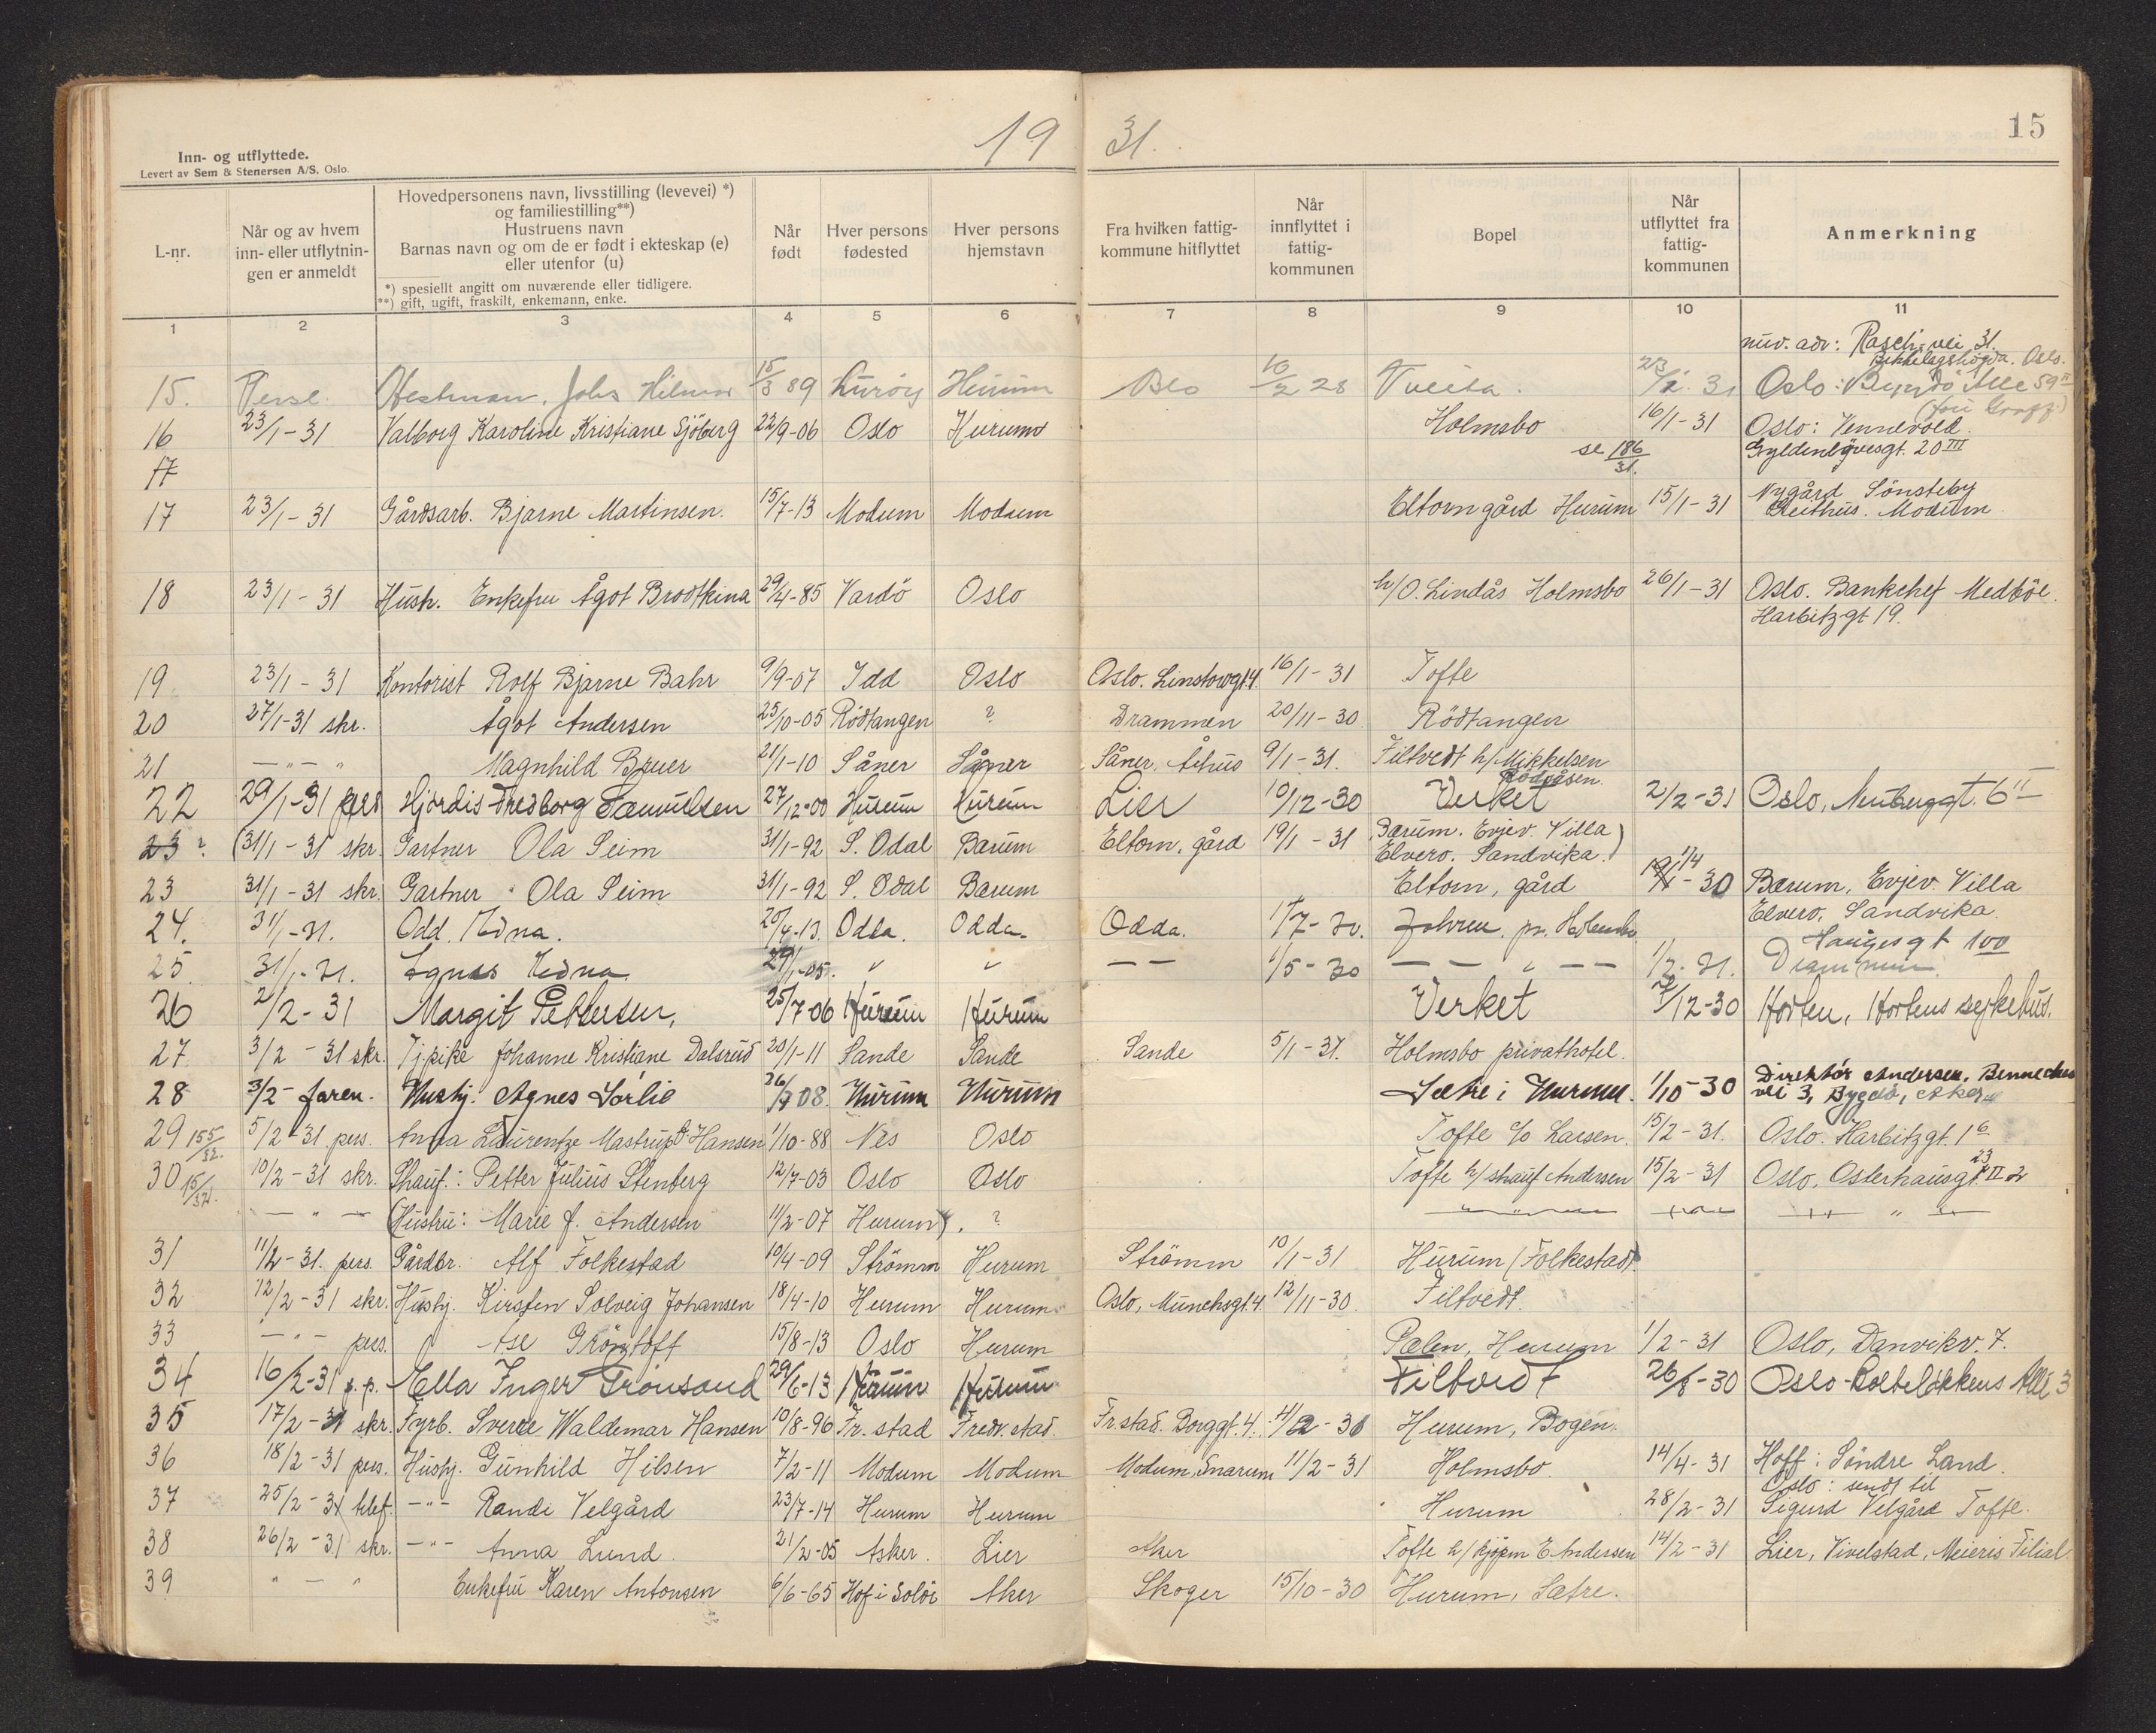 19 31.
15
Inn- og utflyttede.
Levert av Sem & Stenersen A/S. Oslo.
L-nr.
Når og av hvem inn- eller utflytningen er anmeldt
Hovedpersonens navn, livsstilling (levevei) *)
og familiestilling**)
Hustruens navn
Barnas navn og om de er født i ekteskap (e)
eller utenfor (u)
*) spesiellt angitt om nuværende eller tidligere.
**) gift, ugift, fraskilt, enkemann, enke.
Når født
Hver persons fødested
Hver persons hjemstavn
Fra hvilken fattigkommune hitflyttet
Når innflyttet i fattigkommunen
Bopel
Når utflyttet fra fattigkommunen
Anmerkning
1 2 3 4 5 6 7 8 9 10 11
nuv. adr: Rasch. vei 31.
Bekkelagshögda. Oslo.
15. Perse. Hestman, Johs Hilmar 15/3 89 Luröy Hurum Oslo 10/2 28 Tveita. 23/1. 31 Oslo: Bygdö Alle 59 II
16 23/1-31 Valborg Karoline Kristiane Sjöberg 22/9-06 Oslo Hurum Holmsbo 16/1-31 Oslo: Vennevold.
se 186/31. Gyldenlövesgt. 20 III
17
17 23/1-31 Gårdsarb. Bjarne Martinsen. 15/7-13 Modum Modum Eltorn gård Hurum 15/1-31 Nygård Sönsteby
Geithus. Modum.
18 23/1-31 Hush. Enkefru Ågot Brodtkina 29/4-85 Vardö Oslo h/O. Lindås Holmsbo 26/1-31 Oslo. Bankchef Medböe.
Harbitzgt 19.
19 23/1-31 Kontorist Rolf Bjarne Bahr 9/9-07 Idd Oslo Oslo. Linstowgt 4. 16/1-31 Tofte
20 27/1-31 skr. Ågot Andersen 25/10-05 Rödtangen ? Drammen 20/11-30 Rödtangen
21 — " — " Magnhild Bruer 21/1-10 Såner Såner Såner. Århus 9/1-31. Filtvedt h/Mikkelsen
Rödåsen.
22 29/1-31 pers Hjördis Fredborg Samuelsen 27/12-00 Hurum Hurum Lier 10/12-30 Verket 2/2-31 Oslo, Neuberggt. 6 II
23 ? (31/1-31 skr. Gartner Ola Seim 31/1-92 S. Odal Bærum Eltorn, gård 19/1-31 Bærum. Evjev. Villa
Elvero. Sandvika.)
23 31/1-31 skr. Gartner Ola Seim 31/1-92 S. Odal Bærum Eltorn, gård 1/4-30 Bærum, Evjev. Villa
Elvero. Sandvika.
24. 31/1-31. Odd. Edna. 20/4-13. Odda. Odda. Odda. 1/7-30. Johren. pr. Holmsbo
25 31/1-31. Agnes Edna 29/1-05. " " — — 1/5-30 — — " — — 1/2-31. Haugesgt 100
Drammen.
26 2/2-31 Margit Pettersen, 25/7-06 Hurum Hurum Verket /12-30 Horten, Hortens sykehus.
27. 3/2-31 skr. Tj.pike Johanne Kristiane Dalsrud 20/1-11 Sande Sande Sande 5/1-31. Holmsbo privathotel.
28 3/2- faren. Hushj. Agnes Sörlie 26/7 08. Hurum Hurum Sætre i Hurum. 1/10-30 Direktör Andersen, Benneches
vei 3, Bygdö, Aker
29 155/32. 5/2-31 pers. Anna Laurentze Mastrup Hansen 1/10-88 Nes Oslo Tofte c/o Larsen. 15/2-31. Oslo. Harbitzgt. 16
30 15/32. 10/2-31 skr. Shauf.: Petter Julius Stenberg 12/7-03 Oslo Oslo Tofte h/shauf Andersen 15/2-31 Oslo, Osterhausgt. 23 II 2
— " — (Hustru: Marie f. Andersen 11/2-07 Hurum). ? — " — — " — — " —
31 11/2-31. pers. Gårdbr. Alf Folkestad 10/4-09 Strömm Hurum Strömm 10/1-31 Hurum (Folkestad)
32 12/2-31 skr. Hushj. Kirsten Solveig Johansen 18/4-10 Hurum Hurum. Oslo, Munchsgt. 4. 12/11-30. Filtvedt.
33 — " — pers. Åse Gröntoft 15/8-13 Oslo Hurum Pælen, Hurum 1/2-31 Oslo, Danvikv. 7.
34 16/2-31 p.p. Ella Inger Tronsand 29/6-13 Hurum Hurum Filtvedt 26/8-30 Oslo-Rolteløkkens Alle 3
35 17/2-31 skr. Fyrb. Sverre Waldemar Hansen 10/8-96 Fr.stad Fredr.stad. Fr.stad. Borggt. 4. 4/2-31 Hurum, Bogen.
36 18/2-31 pers. Hushj. Gunhild Hilsen 7/2-11 Modum Modum Modum, Snarum 11/2-31 Holmsbo. 14/4-31 Hoff: Söndre Land.
37 25/2-31 tlef. — " — Randi Velgård 23/7-14 Hurum Hurum Hurum 28/2-31 Oslo: sendt til
Sigurd Velgård Tofte.
38 26/2-31 skr. — " — Anna Lund. 21/2-05 Asker. Lier Aker Tofte h/kjöpm E Andersen 14/2-31 Lier, Vivelstad, Meieris Filial.
39 " — " Enkefru Karen Antonsen 6/6-65 Hof i Solör Aker Skoger 15/10-30 Hurum, Sætre.